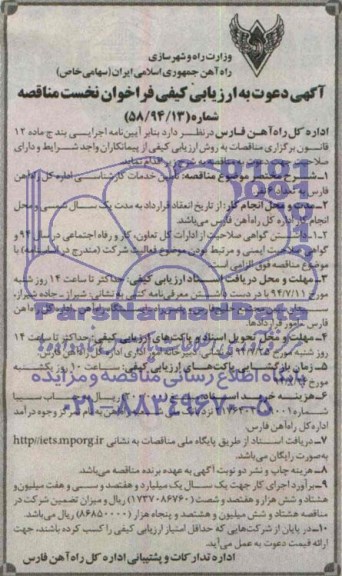 وزارت راه و شهرسازی
راه آهن جمهوری اسلامی ایران (سهامی خاص)
آگهی دعوت به ارزیابی کیفی فراخوان نخست مناقصه
شماره (۵۸/۹۴/۱۳)
اداره کل راه آهن فارس در نظر دارد بنابر آیین‌نامه اجرایی بند ج ماده ۱۲
قانون برگزاری مناقصات به روش ارزیابی کیفی از پیمانکاران واجد شرایط و دارای
۱- شرح مختصر موضوع مناقصه: تامین خدمات کارشناسی اداره کل راه آهن
۲- مدت و محل انجام کار: از تاریخ انعقاد قرارداد به مدت یک سال شمسی و محل
انجام کار اداره کل راه آهن فارس می‌باشد.
گواهی صلاحیت از ادارات کل تعاون، کار و رفاه اجتماعی در سال ۹۴ و
گواهی صلاحیت ایمنی و مرتبط بودن موضوع فعالیت شرکت (مندرج در اساسنامه) با
موضوع مناقصه فوق الزامی
۳- مهلت و محل دریافت اسناد ارزیابی کیفی: حداکثر تا ساعت ۱۴ روز شنبه
مورخ ۹۴/۷/۱۱ با در دست داشتن معرفی‌نامه کتبی به نشانی: شیراز- جاده شیراز-
فارس - امور قراردادها.
ParsNamadData
۴- مهلت و محل تحویل اسناد و پاکت‌های ارزیابی کیفی: حداکثر تا ساعت ۱۴
روز شنبه مورخ ۹۴/۷/۲۵ به نشانی: دبیرخانه امور اداری اداره کل راه آهن فارس
پایگاه اطلاع رسانی مناقصه و مزایده
۵- زمان بازگشایی پاکت‌های ارزیابی کیفی: ساعت ۱۰ روز یکشنبه
۰۲۱-۸۸۳۴۹۶۷۰-۵
۶- هزینه خرید اسناد
اداره کل راه آهن فارس.
۷- دریافت اسناد از طریق پایگاه ملی مناقصات به نشانی http//iets.mporg.ir
به صورت رایگان می‌باشد.
۸- هزینه چاپ و نشر دو نوبت آگهی به عهده برنده مناقصه می‌باشد.
۹- برآورد اجرای کار جهت یک سال یک میلیارد و هفتصد و سی و هفت میلیون و
هشتاد و شش هزار و هفتصد و شصت (۱۷۳۷۰۸۶۷۶۰) ریال و میزان تضمین شرکت در
مناقصه هشتاد و شش میلیون و هشتصد و پنجاه هزار (۸۶۸۵۰۰۰۰) ریال می‌باشد.
۱۰- در پایان از شرکت‌هایی که حداقل امتیاز ارزیابی کیفی را کسب کرده باشند، جهت
ارائه قیمت دعوت به عمل می‌آید.
اداره تدارکات و پشتیبانی اداره کل راه آهن فارس